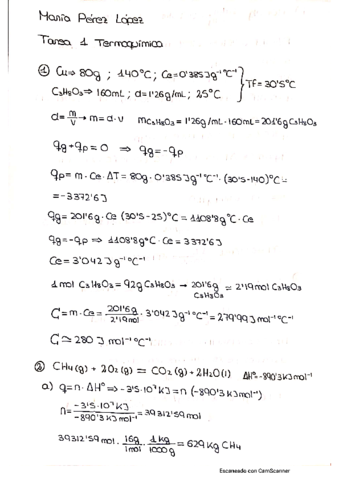 María Pérez López
Tarea 1 Termoquímica
① Cu ⇒ 80g ; 140°C ; Ce = 0'385 J g⁻¹ °C⁻¹ } Tf = 30'5°C
C₃H₈O₃ ⇒ 160mL ; d = 1'26g/mL ; 25°C
d = m/v → m = d · v   mC₃H₈O₃ = 1'26g/mL · 160mL = 201'6g C₃H₈O₃
qg + qp = 0 ⇒ qg = -qp
qp = m · Ce · ΔT = 80g · 0'385 J g⁻¹ °C⁻¹ · (30'5-140)°C =
= -3372'6 J
qg = 201'6g · Ce (30'5-25)°C = 1108'8g °C · Ce
qg = -qp ⇒ 1108'8g°C · Ce = 3372'6 J
Ce = 3'042 J g⁻¹ °C⁻¹
1 mol C₃H₈O₃ = 92g C₃H₈O₃ → 201'6g C₃H₈O₃ = 2'19 mol C₃H₈O₃
C = m · Ce = 201'6g / 2'19mol · 3'042 J g⁻¹ °C⁻¹ = 279'99 J mol⁻¹ °C⁻¹
C ≃ 280 J mol⁻¹ °C⁻¹
② CH₄(g) + 2O₂(g) = CO₂(g) + 2H₂O(l)   ΔH° = -890'3 kJ mol⁻¹
a) q = n · ΔH° ⇒ -3'5·10⁷ kJ = n (-890'3 kJ mol⁻¹)
n = -3'5·10⁷ kJ / -890'3 kJ mol⁻¹ = 39312'59 mol
39312'59 mol · 16g/1mol · 1kg/1000g = 629 kg CH₄
Escaneado con CamScanner